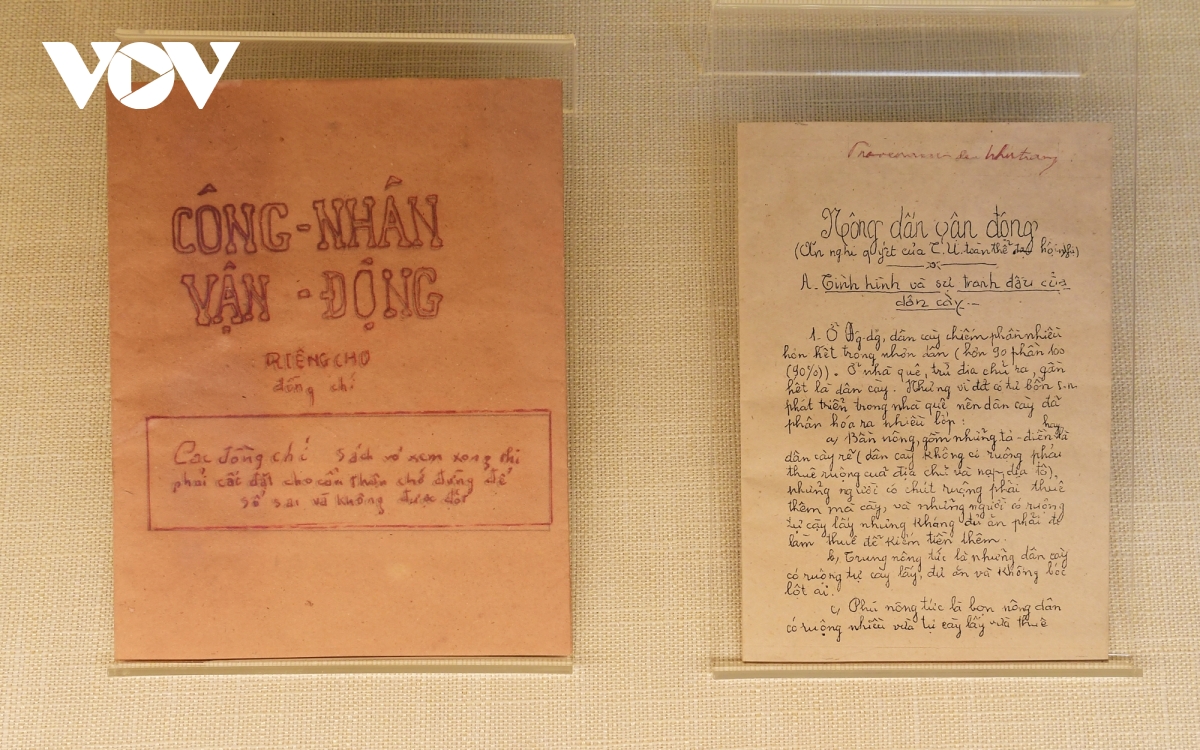 VOV
CÔNG-NHÂN
VẬN-ĐỘNG
RIÊNG CHO
đồng chí
Các đồng chí sách vở xem xong thì
phải cất đặt cho cẩn thận chớ đừng để
sơ sai và không được đốt
Nông dân vận động
(Án nghị quyết của T.Ư. toàn thể hội nghị)
A. Tình hình và sự tranh đấu của
dân cày.
1. Ở Đg-dg, dân cày chiếm phần nhiều
hơn hết trong nhân dân (hơn 90 phần 100
(90%)). Ở nhà quê, trừ địa chủ ra, gần
hết là dân cày. Nhưng vì đã có tư bổn s.n
phát triển trong nhà quê nên dân cày đã
phân hóa ra nhiều lớp:
a) Bần nông, gồm những tá-điền hay là
dân cày rẽ (dân cày không có ruộng phải
thuê ruộng của địa chủ và nạp địa tô)
những người có chút ruộng phải thuê
thêm mà cày, và những người có ruộng
tự cày lấy nhưng kháng đủ ăn phải đi
làm thuê để kiếm tiền thêm.
b) Trung nông tức là những dân cày
có ruộng tự cày lấy, đủ ăn và không bóc
lột ai.
c) Phú nông tức là bọn nông dân
có ruộng nhiều vừa tự cày lấy vừa thuê